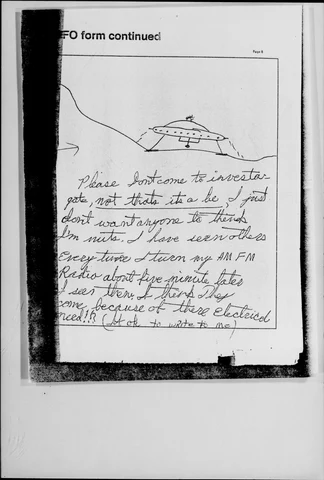 FO form continued
Please dont come to investa-
gate, not thats its a lie, I just
dont want anyone to think
Im nuts. I have seen others
Every time I turn my AM FM
Radio about five minute later
I seen them. I think They
come, because of there Electricd
need!!? (It ok to write to me)